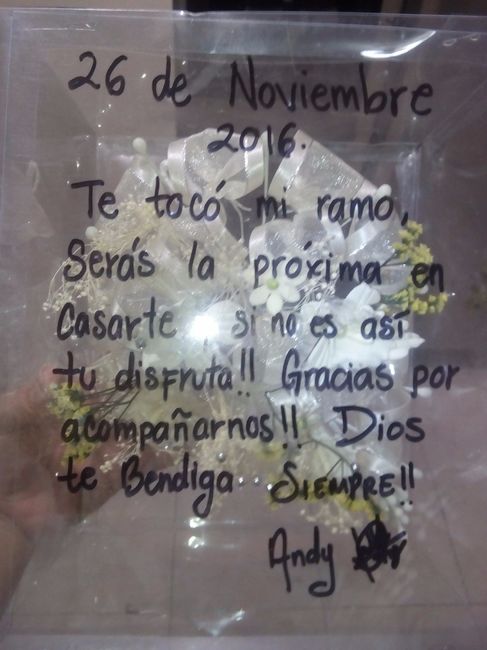 26 de Noviembre
2016.
Te tocó mi ramo,
Serás la próxima en
Casarte, si no es así
tu disfruta!! Gracias por
acompañarnos!! Dios
te Bendiga... SIEMPRE!!
Andy